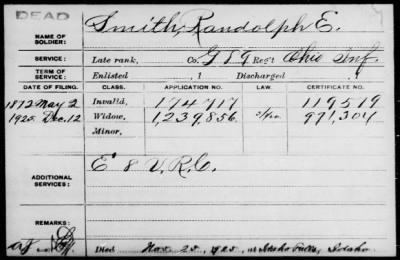 DEAD
NAME OF SOLDIER: Smith, Randolph E.
SERVICE: Late rank, Co. G 59 Reg't Ohio Inf.
TERM OF SERVICE: Enlisted , 1 Discharged , 1
DATE OF FILING. CLASS. APPLICATION NO. LAW. CERTIFICATE NO.
1872 May 2 Invalid, 174717 119519
1925 Dec. 12 Widow, 1,239,856 971,304
Minor,
ADDITIONAL SERVICES: E 8 V.R.C.
REMARKS:
Died Nov. 25, 1925, at Idaho Falls, Idaho